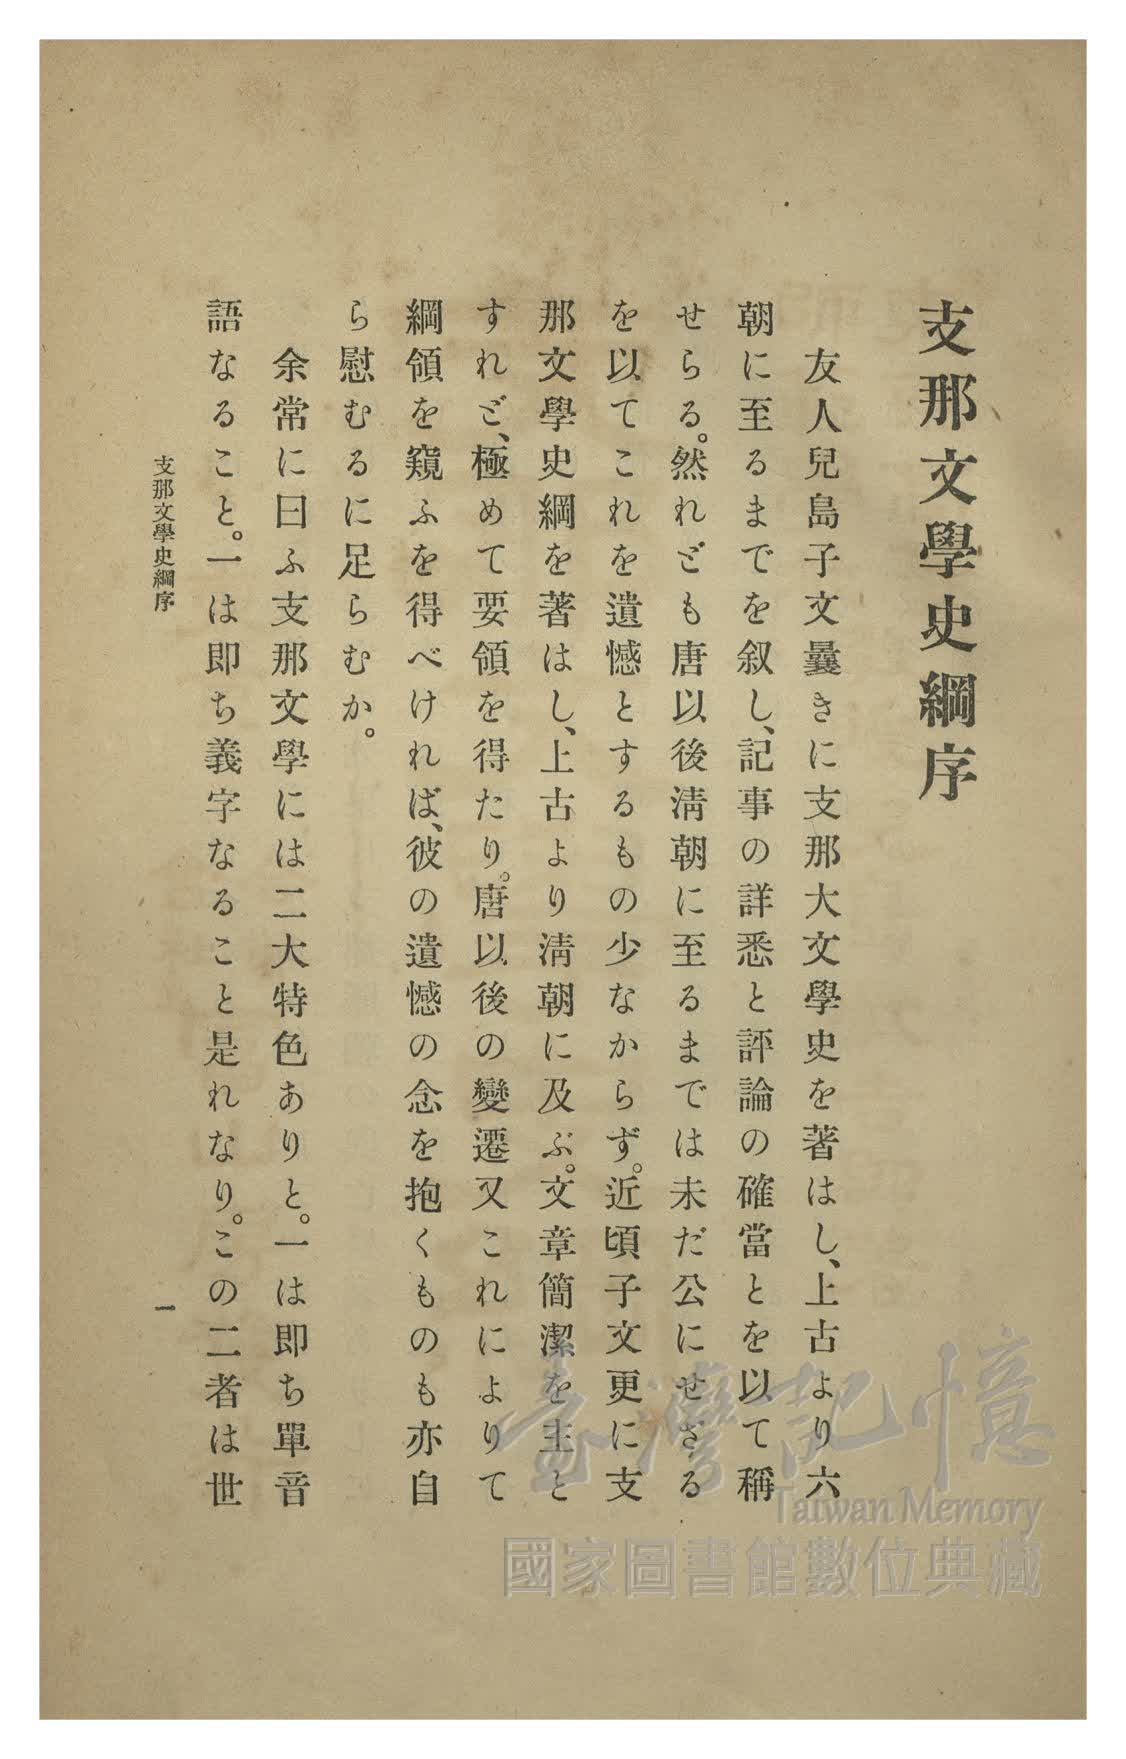 支那文學史綱序
友人兒島子文曩きに支那大文學史を著はし、上古より六
朝に至るまでを叙し、記事の詳悉と評論の確當とを以て稱
せらる。然れども唐以後淸朝に至るまでは未だ公にせざる
を以てこれを遺憾とするもの少なからず。近頃子文更に支
那文學史綱を著はし、上古より淸朝に及ぶ。文章簡潔を主と
すれど、極めて要領を得たり。唐以後の變遷又これによりて
綱領を窺ふを得べければ、彼の遺憾の念を抱くものも亦自
ら慰むるに足らむか。
余常に曰ふ支那文學には二大特色ありと。一は卽ち單音
語なること。一は卽ち義字なること是れなり。この二者は世
支那文學史綱序
一
臺灣記憶
Taiwan Memory
國家圖書館數位典藏